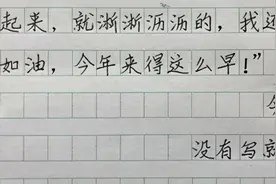 起来，就淅淅沥沥的，我这
如油，今年来得这么早！”
没有写京